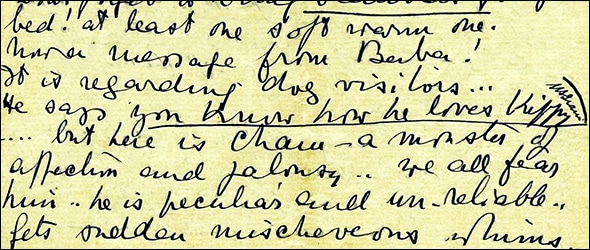 is being
bed! at least one soft warm one.
Now a message from Baba!
It is regarding dog visitors...
He says you know how he loves Kippy
.... but here is Cham – a monster of
affection and jalousy.. we all fear
him.. he is peculiar and un-reliable..
gets sudden mischeveous whims